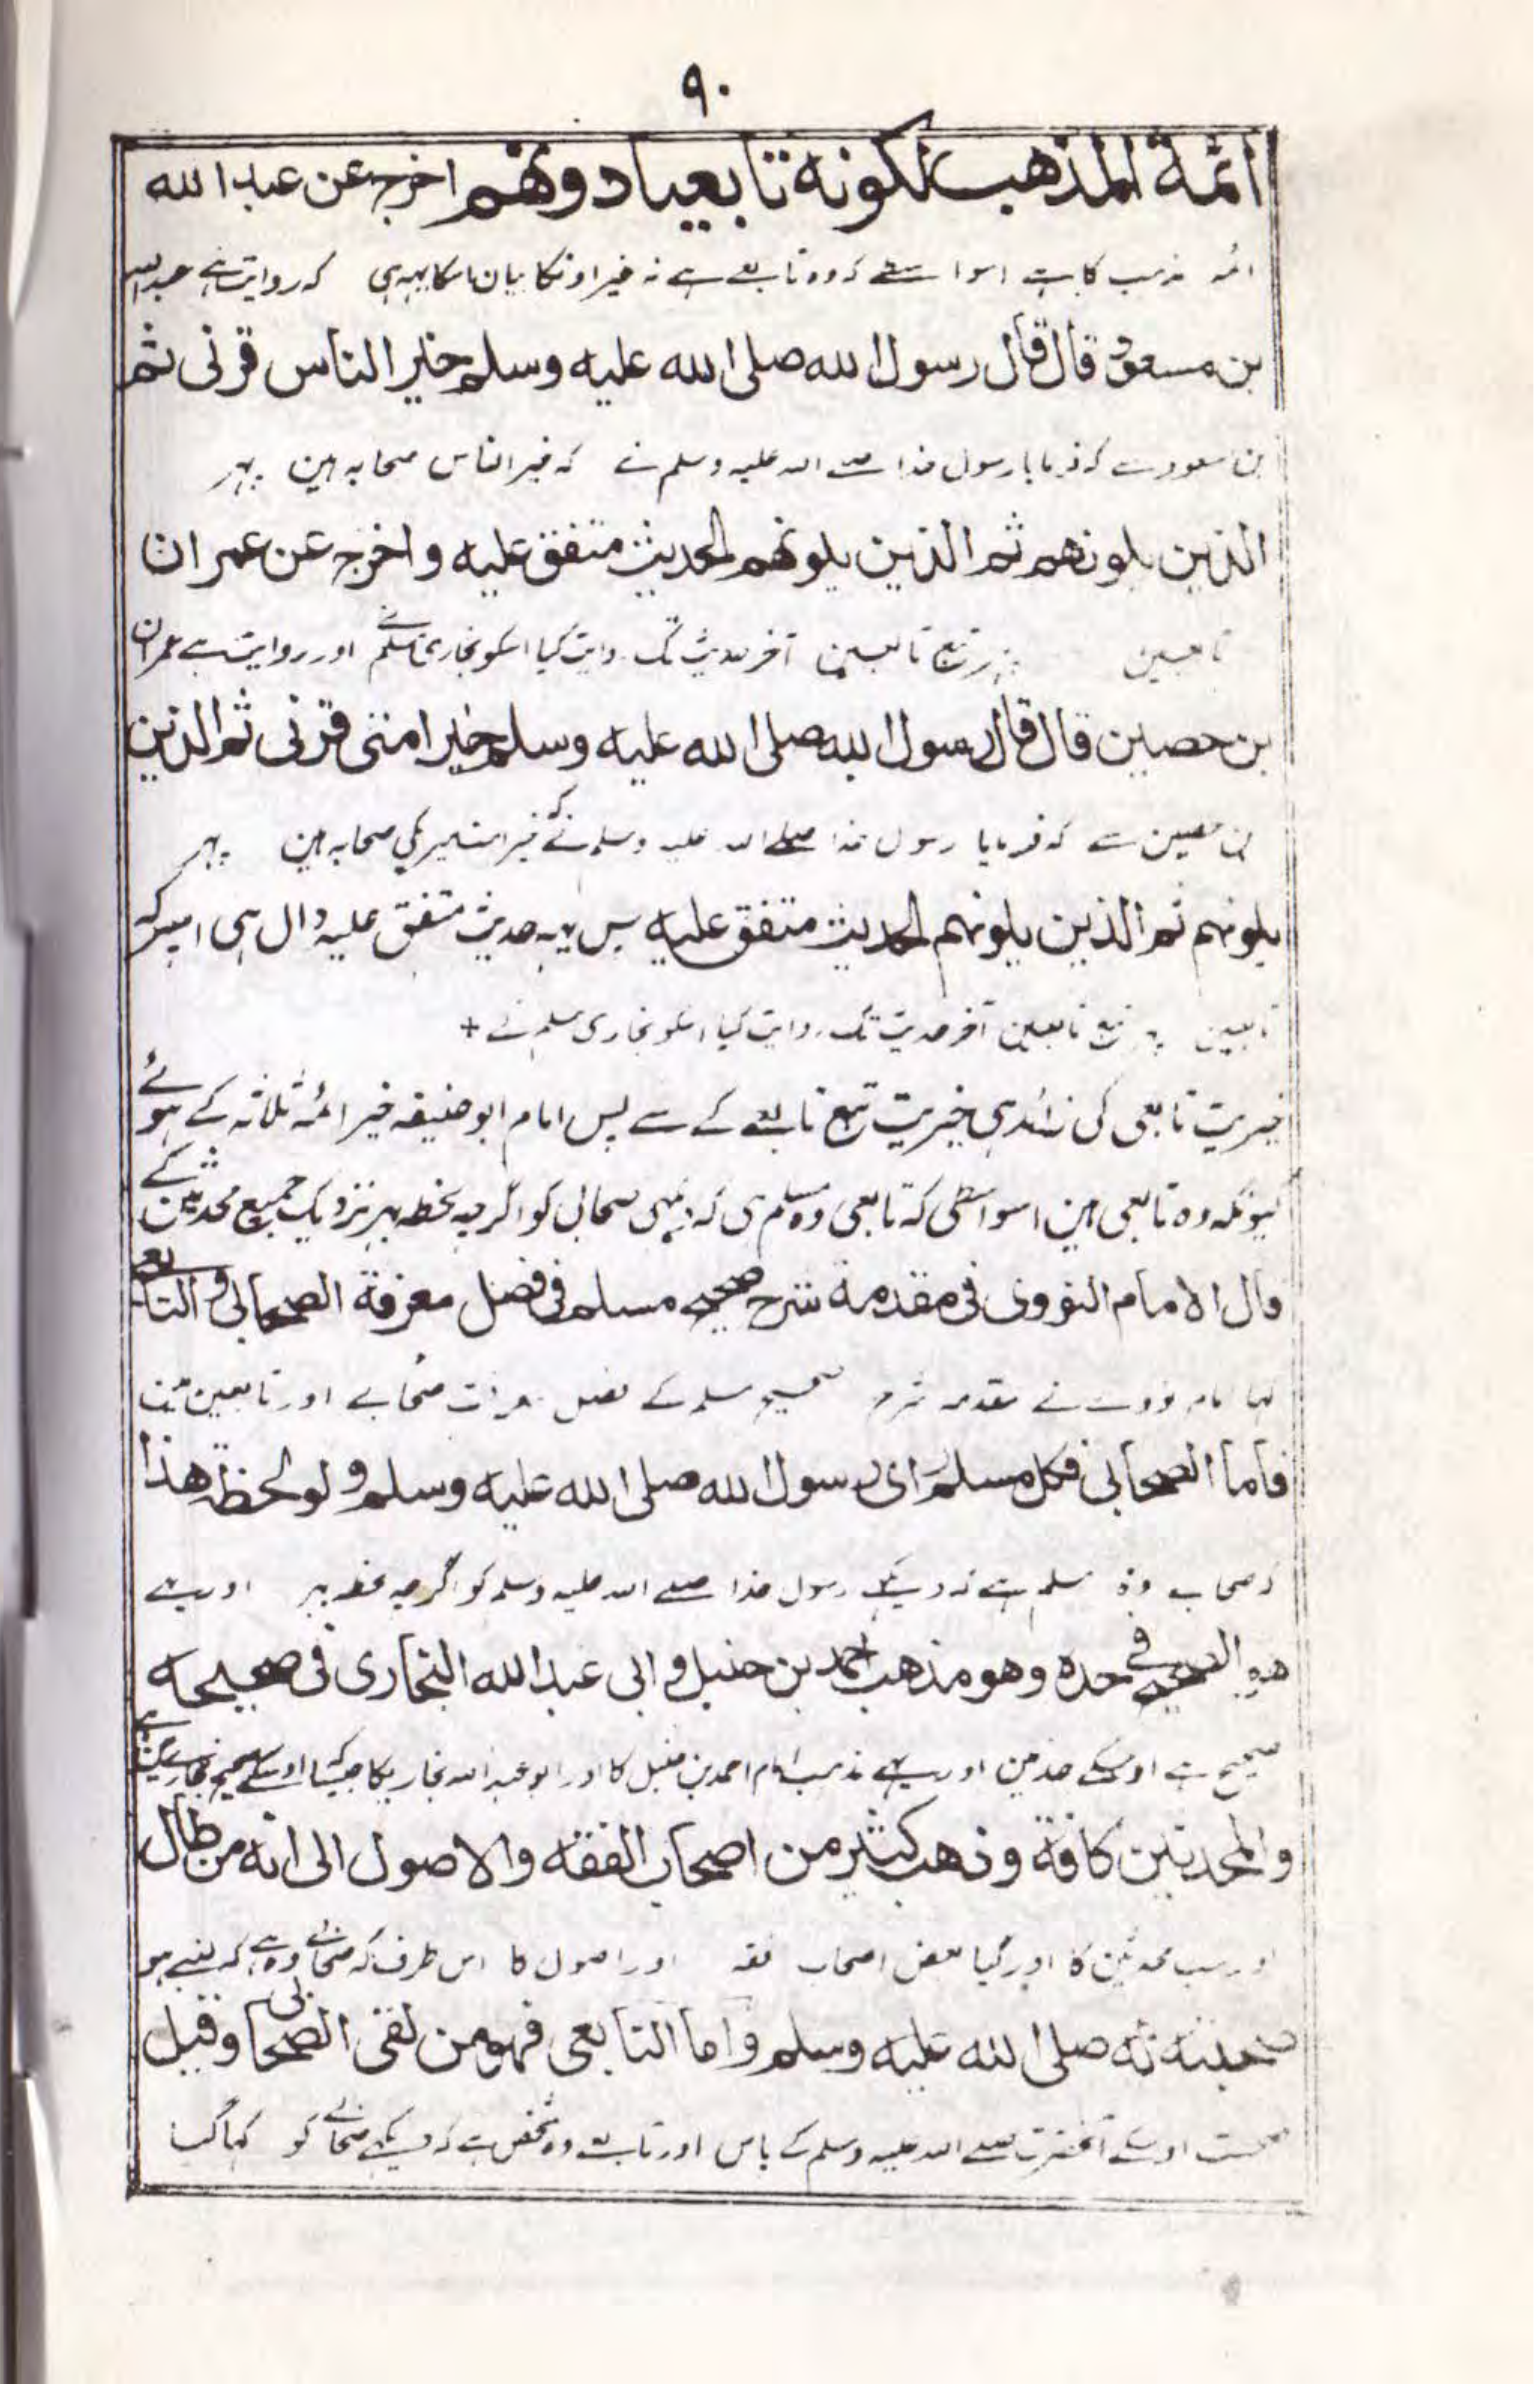 ۹۰
ائمة المذهب لكونه تابعيا دونهم اخرج عن عبد الله
ائمہ مذہب کا ہے اسواسطے کہ وہ تابعے ہے نہ غیر اونکا بیان اسکا یہہ ہی کہ روایت ہے عبد اللہ
بن مسعود قال قال رسول الله صلى الله عليه وسلم خير الناس قرنی ثم
بن مسعود سے کہ فرمایا رسول خدا صلے اللہ علیہ وسلم نے کہ خیر الناس صحابہ ہین پہر
الذين يلونهم ثم الذين يلونهم الحديث متفق عليه واخرج عن عمران
تابعین پہر تبع تابعین آخر حدیث تک روایت کیا اسکو بخاری مسلم نے اور روایت ہے عمران
بن حصين قال قال رسول الله صلى الله عليه وسلم خير امتی قرنی ثم الذين
بن حصین سے کہ فرمایا رسول خدا صلے اللہ علیہ وسلم نے کہ خیر امت میری کی صحابہ ہین پہر
يلونهم ثم الذين يلونهم الحديث متفق عليه پس یہہ حدیث متفق علیہ دال ہی اسپر کہ
تابعین پہر تبع تابعین آخر حدیث تک روایت کیا اسکو بخاری مسلم نے +
خیریت تابعی کی زائد ہی خیریت تبع تابعے کے سے پس امام ابو حنیفہ خیر ائمہ ثلاثہ کے ہوئے
کیونکہ وہ تابعی ہین اسواسطی کہ تابعی وہ مسلم ہی کہ دیکہی صحابی کو اگرچہ لحظہ بہر نزدیک جمیع محدثین کے
قال الامام النووی فی مقدمة شرح صحيح مسلم فی فصل معرفة الصحابی والتابعی
کہا امام نووے نے مقدمہ شرح صحیح مسلم کے فصل معرفت صحابے اور تابعین مین
فاما الصحابی فكل مسلم رای رسول الله صلى الله عليه وسلم ولو لحظة هذا
کہ صحابے وہ مسلم ہے کہ دیکہے رسول خدا صلے اللہ علیہ وسلم کو اگرچہ لحظہ بہر اور یہے
هو الصحيح فی حده وهو مذهب احمد بن حنبل وابی عبد الله البخاری فی صحيحه
صحیح ہے اوسکے حد مین اور یہے مذہب امام احمد بن حنبل کا اور ابو عبد اللہ بخاریکا
والمحدثين كافة وذهب كثير من اصحاب الفقه والاصول الى انه من طال
اور سب محدثین کا اور گیا بعض اصحاب فقہ اور اصول کا اس طرف کہ صحابے وہ ہے کہ لنبے ہو
صحبته له صلى الله عليه وسلم واما التابعی فهو من لقی الصحابی وقيل
صحبت اوسکے آنحضرت صلے اللہ علیہ وسلم کے پاس اور تابعے وہ شخص ہے کہ دیکہے صحابے کو کہا گیا